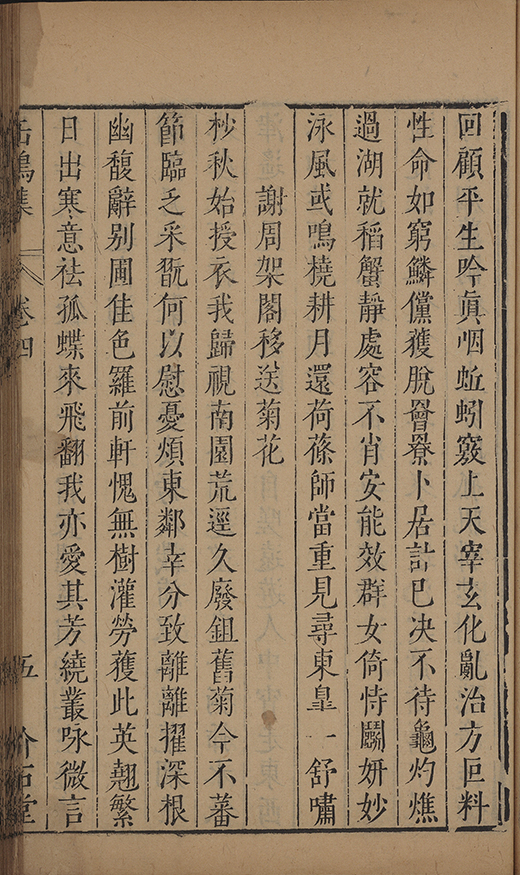 回顧平生吟眞咽蚯蚓竅上天宰玄化亂治方叵料
性命如窮鱗儻獲脫罾罺卜居計已决不待龜灼燋
過湖就稻蟹靜處容不肖安能效群女倚恃鬭妍妙
泳風或鳴橈耕月還荷蓧師當重見尋東臯一舒嘯
謝周架閣移送菊花
杪秋始授衣我歸視南園荒逕久廢鉏舊菊今不蕃
節臨乏采翫何以慰憂煩東鄰幸分致離離擢深根
幽馥辭别圃佳色羅前軒愧無樹灌勞獲此英翹繁
日出寒意祛孤蝶來飛翻我亦愛其芳繞叢咏微言
缶鳴集
卷四
五
介石堂